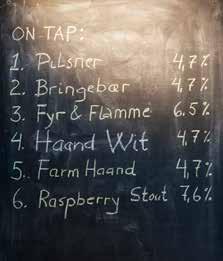 ON TAP:
1. Pilsner 4,7%
2. Bringebær 4,7%
3. Fyr & Flamme 6.5%
4. Haand Wit 4,7%
5. Farm Haand 4,7%
6. Raspberry Stout 7,6%